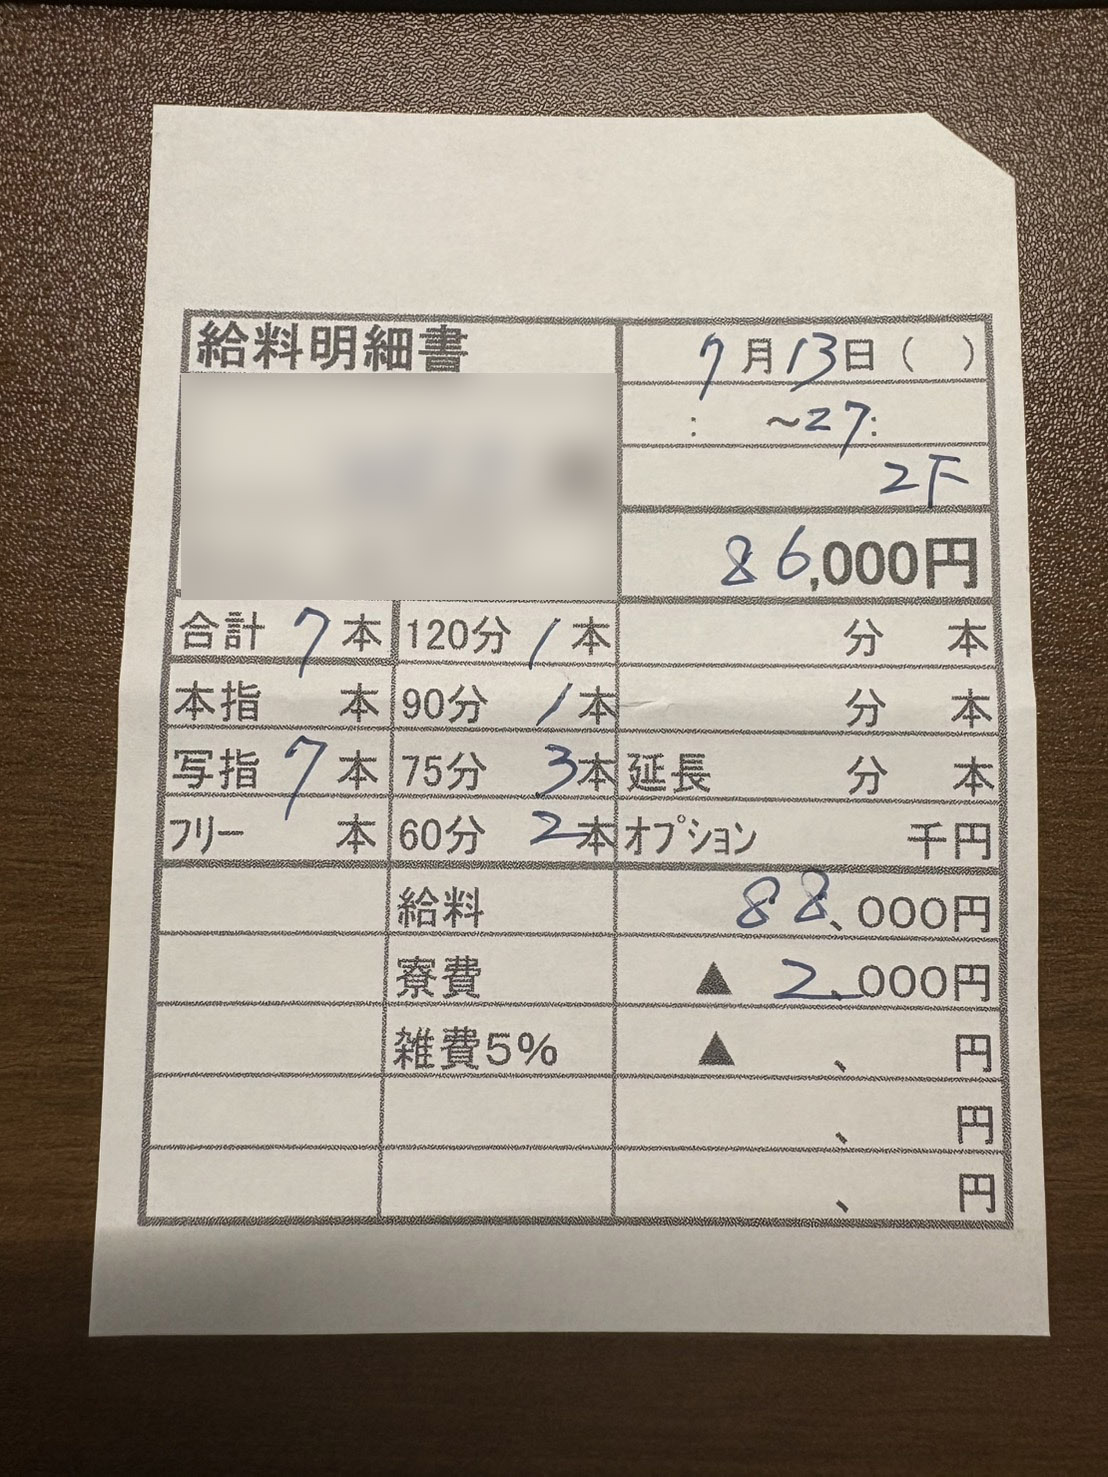 給料明細書
7月13日( )
: ~27:
2F
86,000円
合計 7本 120分 1本 分 本
本指 本 90分 1本 分 本
写指 7本 75分 3本 延長 分 本
フリー 本 60分 2本 オプション 千円
給料 88、000円
寮費 ▲ 2、000円
雑費5% ▲ 、 円
、 円
、 円